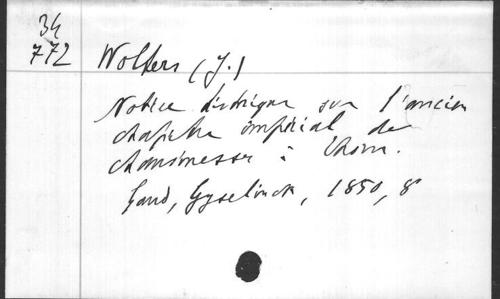 34
772
Wolters (J.)
Notice historique sur l'ancien
chapitre impérial de
chanoinesses à Thorn.
Gand, Gyselinck, 1850, 8°